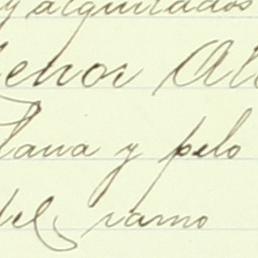 y alquilados
Señor Al
lana y pelo
del ramo